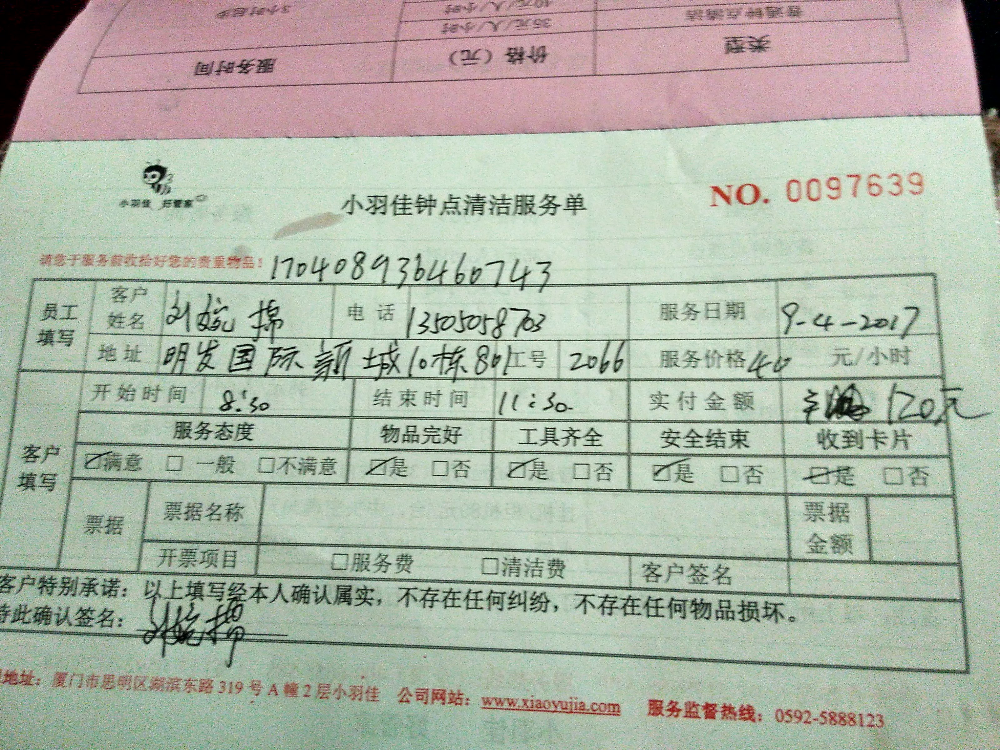 3小时起步 40元/人/小时 普通钟点清洁
35元/人/小时
服务时间 价格（元） 类型
小羽佳 好管家
小羽佳钟点清洁服务单
NO. 0097639
请您于服务前收拾好您的贵重物品！
1704089364460743
员工填写
客户姓名 刘 电话 13505058703 服务日期 9-4-2017
地址 明发国际新城10栋801 工号 2066 服务价格 40 元/小时
客户填写
开始时间 8:30 结束时间 11:30 实付金额 120元
服务态度 物品完好 工具齐全 安全结束 收到卡片
☑满意 □一般 □不满意 ☑是 □否 ☑是 □否 ☑是 □否 ☑是 □否
票据 票据名称 票据金额
开票项目 □服务费 □清洁费 客户签名
客户特别承诺：以上填写经本人确认属实，不存在任何纠纷，不存在任何物品损坏。
特此确认签名：刘
地址：厦门市思明区湖滨东路 319 号 A 幢 2 层小羽佳 公司网站：www.xiaoyujia.com 服务监督热线：0592-5888123